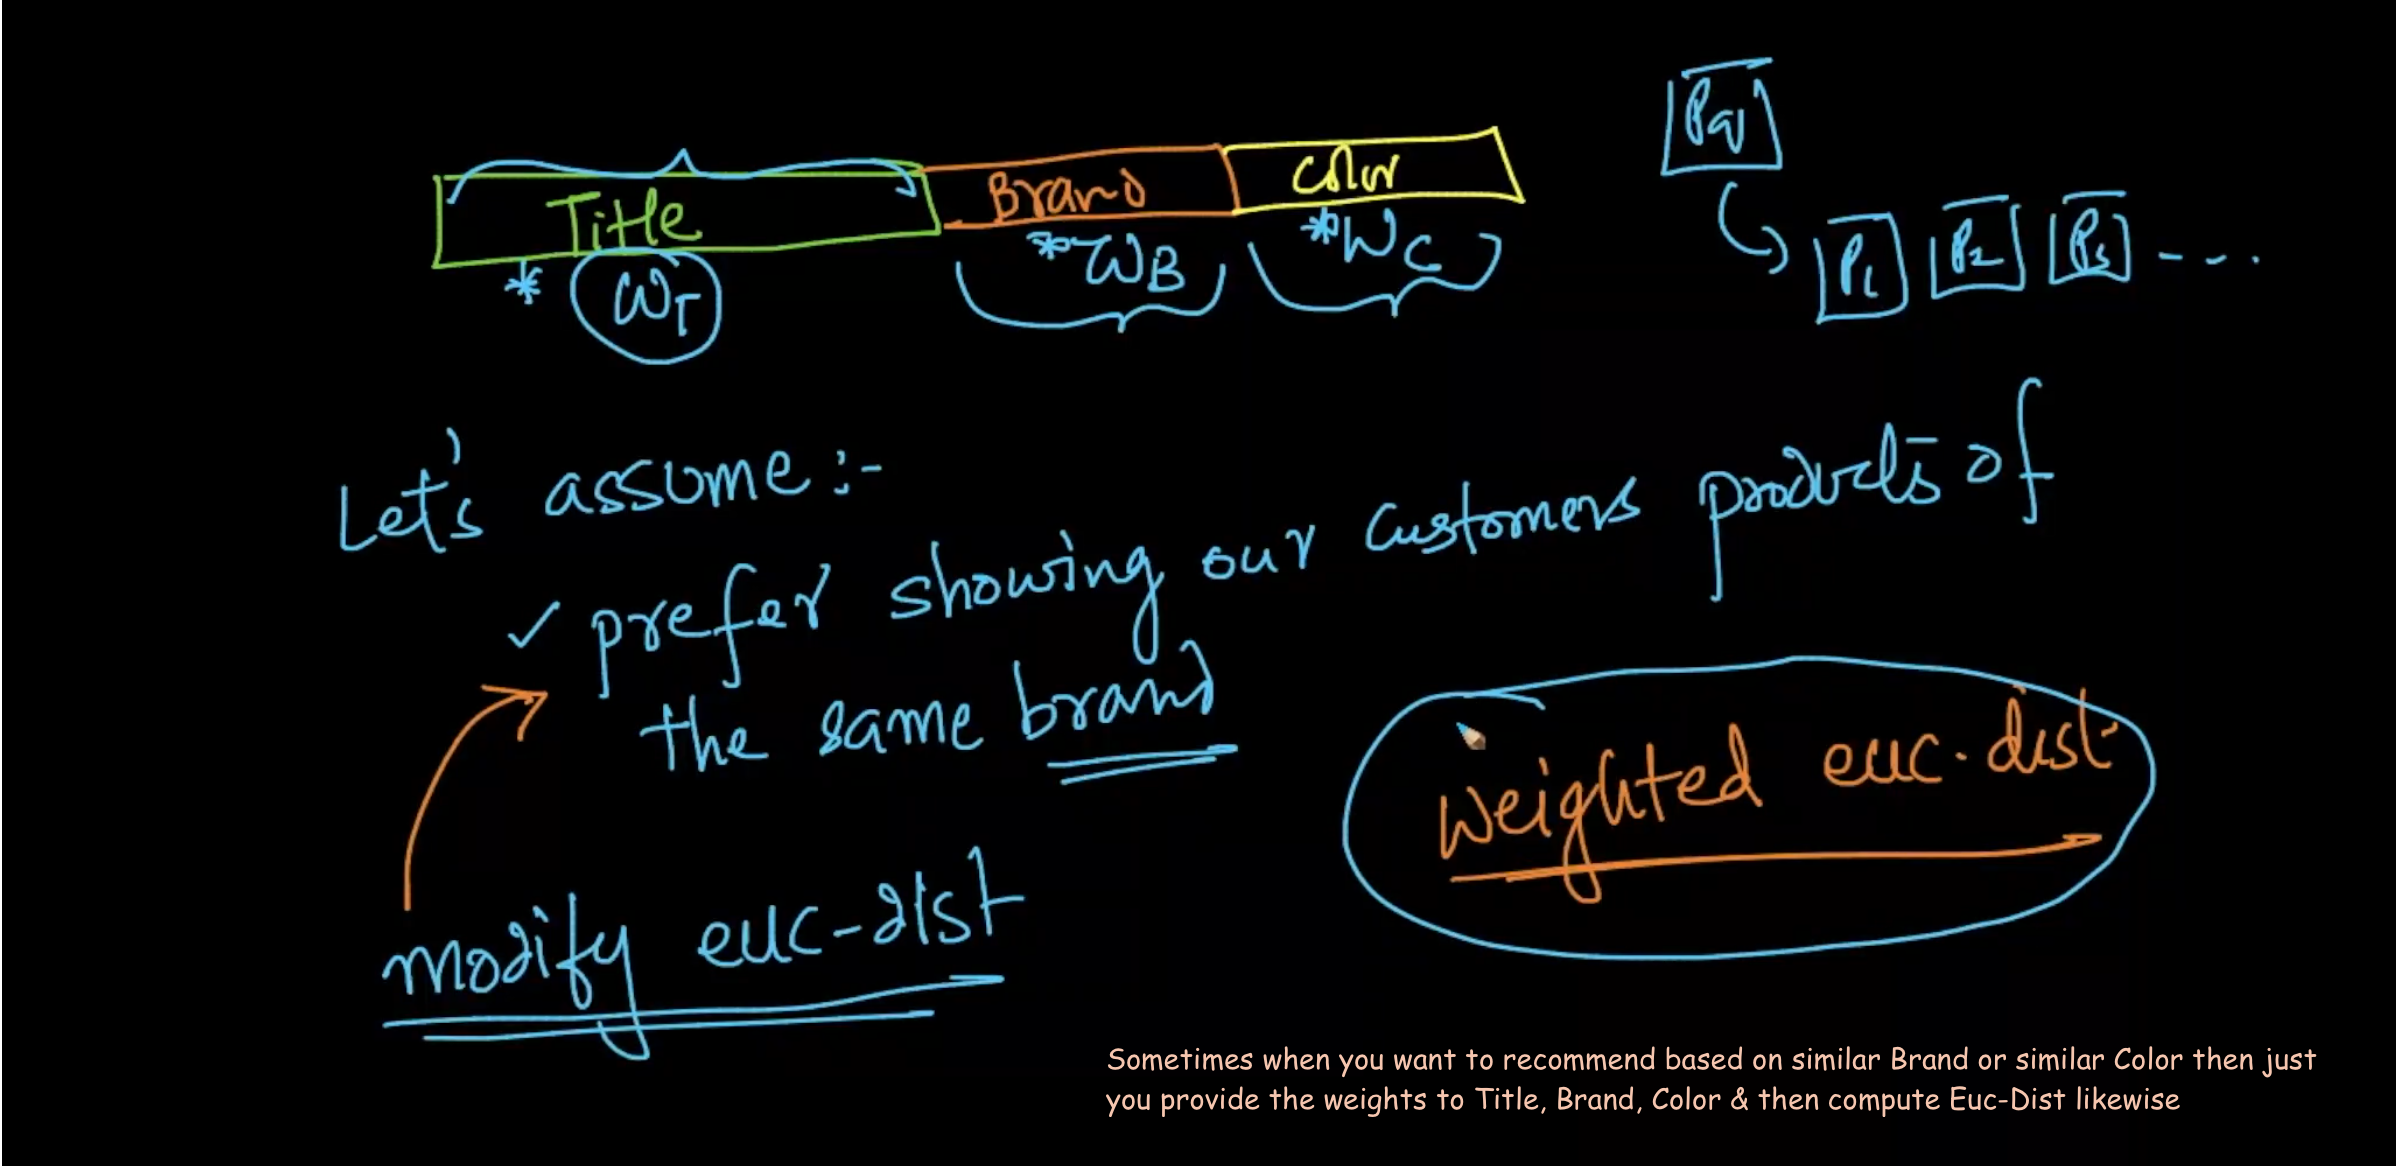 Title Brand Color
* WT *WB *WC
Pq
P1 P2 P3 ----
Let's assume :-
✓ prefer showing our customers products of
the same brand
weighted euc. dist
modify euc-dist
Sometimes when you want to recommend based on similar Brand or similar Color then just
you provide the weights to Title, Brand, Color & then compute Euc-Dist likewise